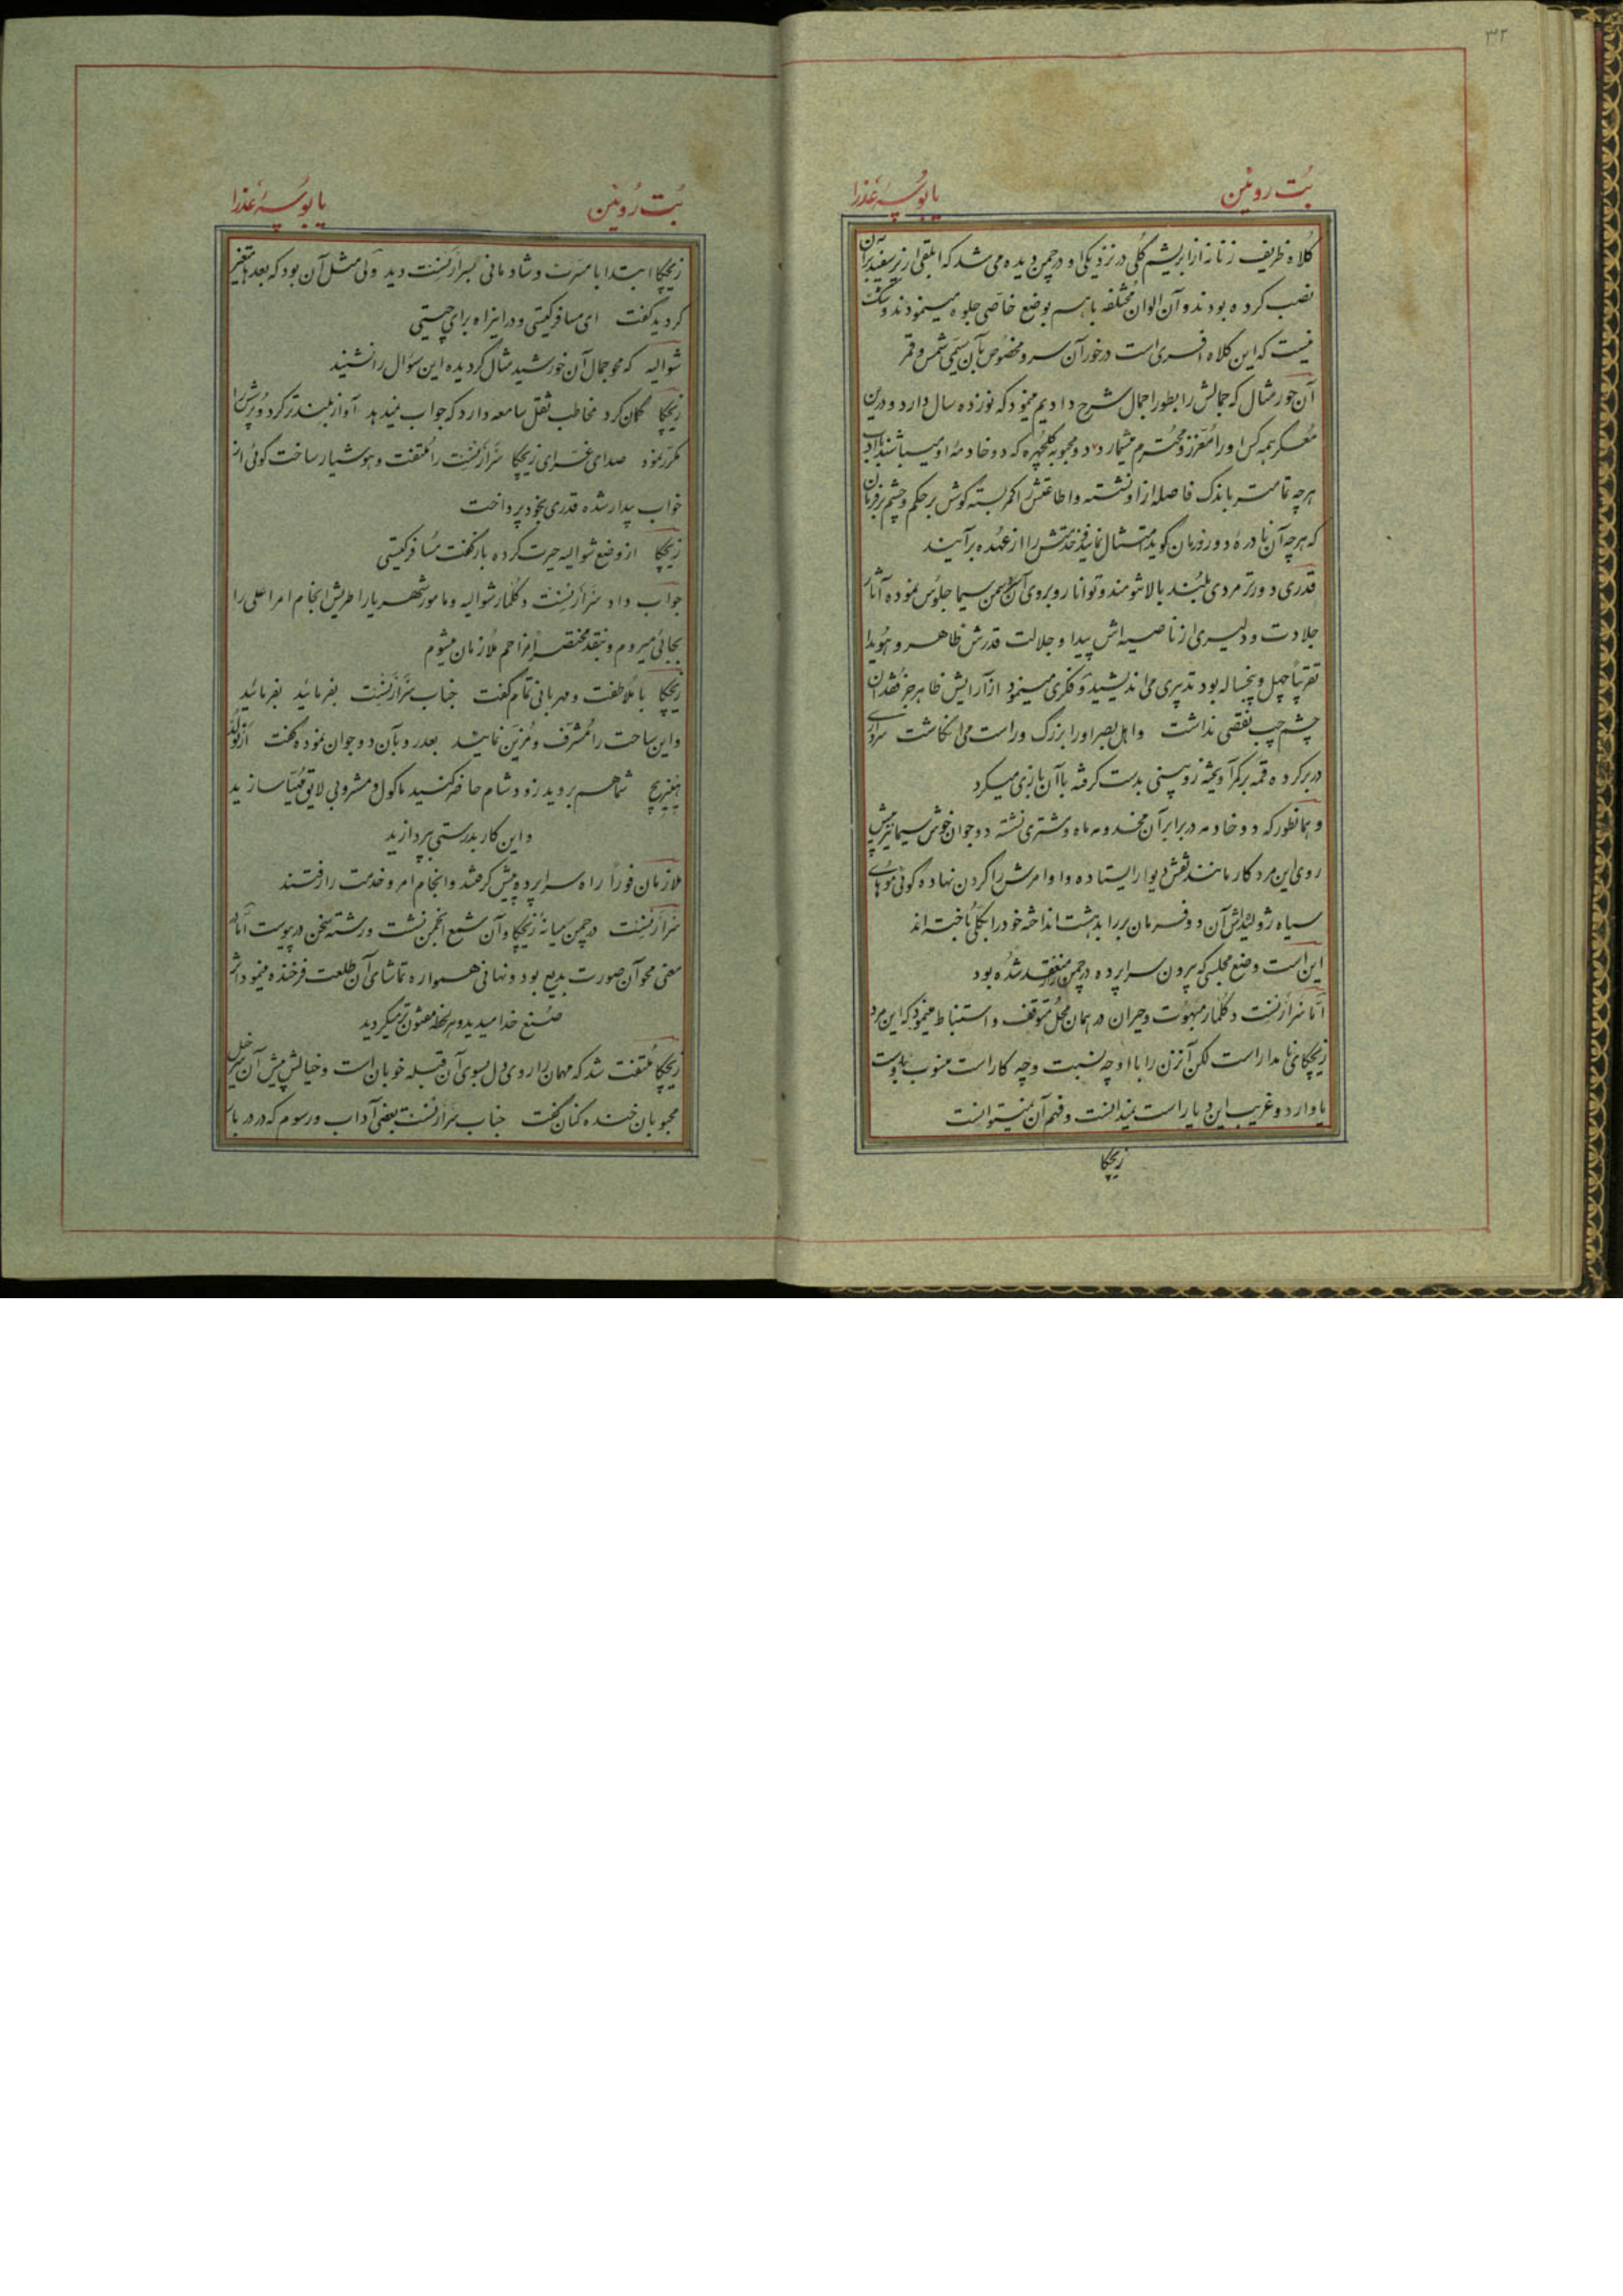 ۳۲
بُت روئین
یا بوسهٔ عذرا
کلاه ظریف زنانه از ابریشم گلی در نزدیکی او در چمن دیده می شد که ابلقی از پر سفید بر آن
نصب کرده بودند و آن الوان مختلفه با هم بوضع خاصّی جلوه مینمودند و شک
نیست که این کلاه افسری است درخور آن سر و مخصوص بآن سَمیّ شمس و قمر
آن حور مثال که جمالش را بطور اجمال شرح دادیم مینمود که نوزده سال دارد و درین
مُعسکر همه کس او را مُعزّز و محترم میشمارد و دو محبوبه گلچهره که دو خادمهٔ او میباشند با ادب
هرچه تمامتر باندک فاصله از او نشسته و اطاعتش را کمر بسته گوش بر حکم و چشم بر فرمان
که هرچه آن نادرهٔ دور زمان گوید امتثال نمایند و خدمتش را از عهده برآیند
قدری دورتر مردی بلند بالا تنومند و توانا روبروی آن سمن سیما جلوس نموده آثار
جلادت و دلیری از ناصیه اش پیدا و جلالت قدرش ظاهر و هُویدا
تقریباً چهل و پنجساله بود تدبیری می اندیشید و فکری مینمود از آرایش ظاهر جز فقدان
چشم چپ نقصی نداشت و اهل بصر او را بزرگ و راست می انگاشت سرداری
دربر کرده قمه بر کمر آویخته زوبینی بدست گرفته با آن بازی میکرد
و همانطور که دو خادمه در برابر آن مخدومه ماه و مشتری نشسته دو جوان خوش سیما نیز پیش
روی این مرد کار مانند نقش دیوار ایستاده و اوامرش را گردن نهاده گوئی موهای
سیاه ژولیده‌اش آن دو فرمان بر را بدهشت انداخته خود را بکلی باخته اند
این است وضع مجلسی که بیرون سراپرده در چمن منعقد شده بود
امّا سَرآرنِست دکلمار مبهوت و حیران در همان محلّ متوقف و استنباط مینمود که این مرد
زیچکای نامدار است لکن آنزن را با او چه نسبت و چه کار است منسوب بدوست
یا وارد و غریب این دیار است نمیدانست و فهم آن نمیتوانست
زیچکا
بُت رُوئین
یا بوسهٔ عُذرا
زیچکا ابتدا با مسرّت و شادمانی بسرآرنِست دید ولی مثل آن بود که بعدها متغیر
گردید گفت ای مسافر کیستی و در اینراه برای چیستی
شوالیه که محو جمال آن خورشید مثال گردیده این سؤال را نشنید
زیچکا گمان کرد مخاطب ثقل سامعه دارد که جواب نمیدهد آواز بلندتر کرد و پرسش را
مکرّر نمود صدای غرّای زیچکا سَرآرنِست را مُلتفت و هوشیار ساخت گوئی از
خواب بیدار شده قدری بخود پرداخت
زیچکا از وضع شوالیه حیرت کرده باز گفت مسافر کیستی
جواب داد سَرآرنِست دکلمار شوالیه و مامور شهریارا طریش انجام امر اعلی را
بجائی میروم و بنقد مختصر مزاحم ملازمان میشوم
زیچکا با ملاطفت و مهربانی تمام گفت جناب سَرآرنِست بفرمائید بفرمائید
و این ساحت را مُشرّف و مُزیّن نمایند بعد رو بآن دو جوان نموده گفت
هینریخ شما هم بروید زود شام حاضر کنید ماکول و مشروبی لایق مُهیّا سازید
و این کار بدرستی بپردازید
ملازمان فوراً راه سراپرده پیش گرفتند و انجام امر و خدمت را رفتند
سَرآرنِست در چمن میانهٔ زیچکا و آن شمع انجمن نشست و رشته سخن درپیوست امّا در
معنی محو آن صورت بدیع بود و نهانی همواره تماشای آن طلعت فرخنده مینمود اثر
صُنع خدا میدید و هر لحظه مفتون تر میگردید
زیچکا مُلتفت شد که مهمان را روی دل بسوی آن قبله خوبان است و خیالش پیش آن سرخیل
محبوبان خنده کنان گفت جناب سَرآرنِست بعضی آداب و رسوم که در دربار